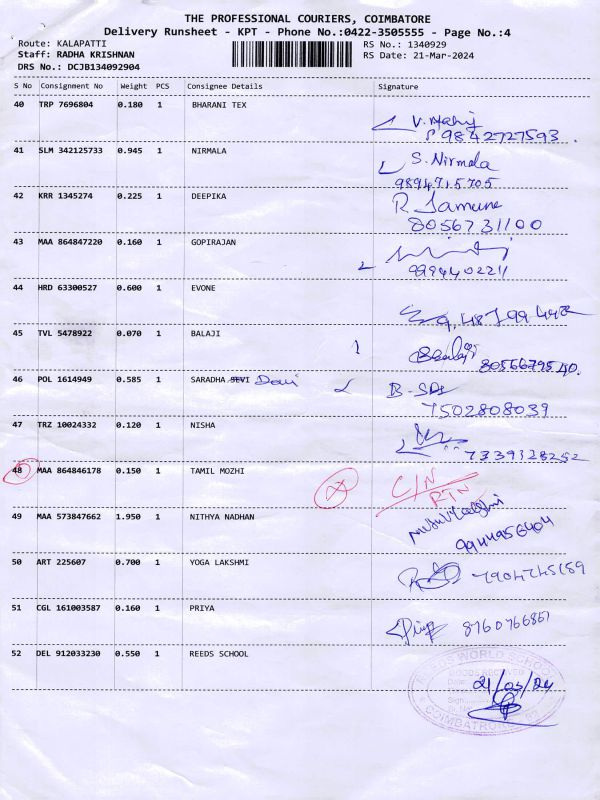 THE PROFESSIONAL COURIERS, COIMBATORE
Delivery Runsheet - KPT - Phone No.:0422-3505555 - Page No.:4
Route: KALAPATTI RS No.: 1340929
Staff: RADHA KRISHNAN RS Date: 21-Mar-2024
DRS No.: DCJB134092904
S No Consignment No Weight PCS Consignee Details Signature
40 TRP 7696804 0.180 1 BHARANI TEX
9842727593
41 SLM 342125733 0.945 1 NIRMALA S. Nirmala
9894915705
42 KRR 1345274 0.225 1 DEEPIKA R
8056731100
43 MAA 864847220 0.160 1 GOPIRAJAN
9994402211
44 HRD 63300527 0.600 1 EVONE
45 TVL 5478922 0.070 1 BALAJI Balaji
46 POL 1614949 0.585 1 SARADHA SEVI Devi
7502808039
47 TRZ 10024332 0.120 1 NISHA
7339128252
48 MAA 864846178 0.150 1 TAMIL MOZHI C/N
RTN
49 MAA 573847662 1.950 1 NITHYA NADHAN
9944956404
50 ART 225607 0.700 1 YOGA LAKSHMI
7904745189
51 CGL 161003587 0.160 1 PRIYA Priya
8760766867
52 DEL 912033230 0.550 1 REEDS SCHOOL
REEDS WORLD SCHOOL
21/03/24